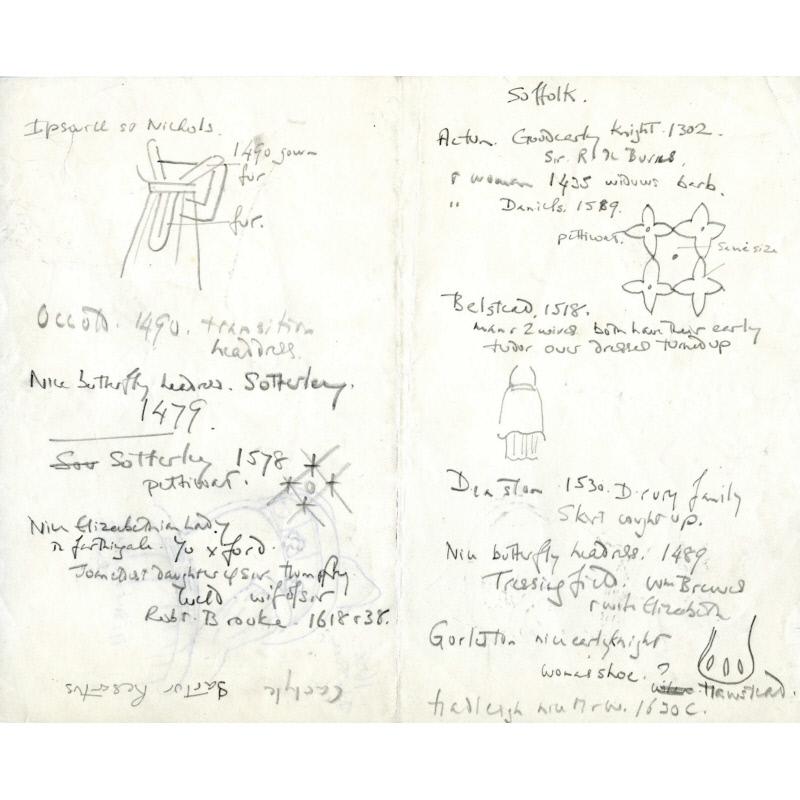 Ipswich St Nichols.
1490 gown
fur
fur.
Occold. 1490. transition
headdress
Nice butterfly headress. Sotterley.
1479.
Sotterley 1578
pettiwat.
Nice Elizabethian Lady
farthingale. Yoxford.
daughter of Sir Humphry
Weld wif of Sir
Robt. Brooke. 1618 r 38.
Carlyle Sartor Resartus
Soffolk.
Acton. Good early Knight. 1302.
Sir. R de Burns.
& woman 1435 widows barb.
" Daniels. 1589.
pettiwat.
same size
Belstead, 1518.
man & 2 wives both have their early
tudor over dresses turned up
Denston 1530. Drury family
Skirt caught up.
Nice butterfly headress. 1489
Fressingfield. Wm Brewes
& wife Elizabeth
Gorleston nice early knight
woman shoe. ?
Hawstead.
Hadleigh nice M & W. 1630 C.